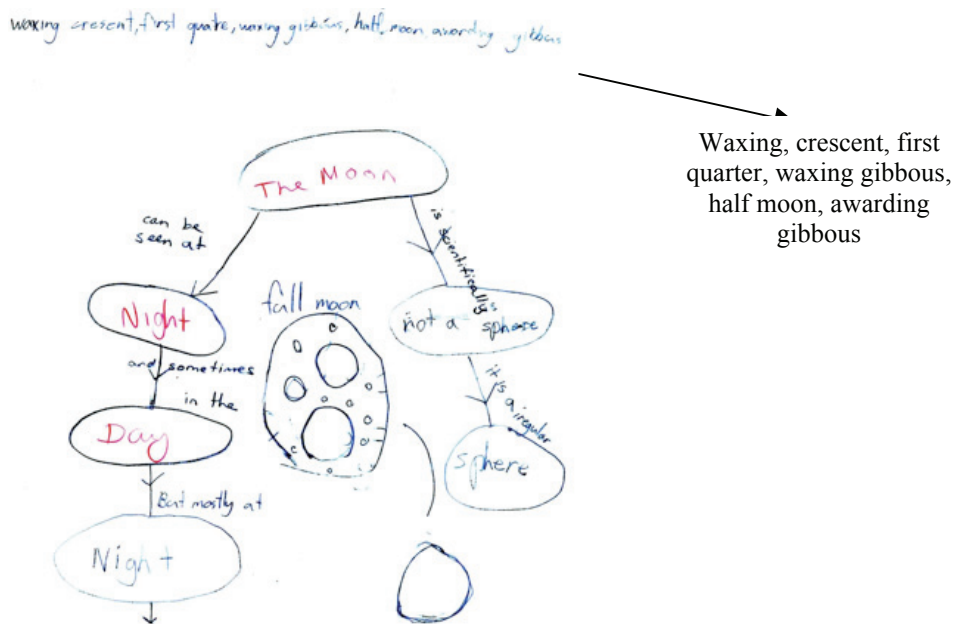 waxing crescent, first quatre, waxing gibbous, half, moon awarding gibbous
Waxing, crescent, first
quarter, waxing gibbous,
half moon, awarding
gibbous
The Moon
can be
seen at
Night
and sometimes
in the
Day
But mostly at
Night
full moon
is scientifically
not a sphere
it is a irregular
sphere